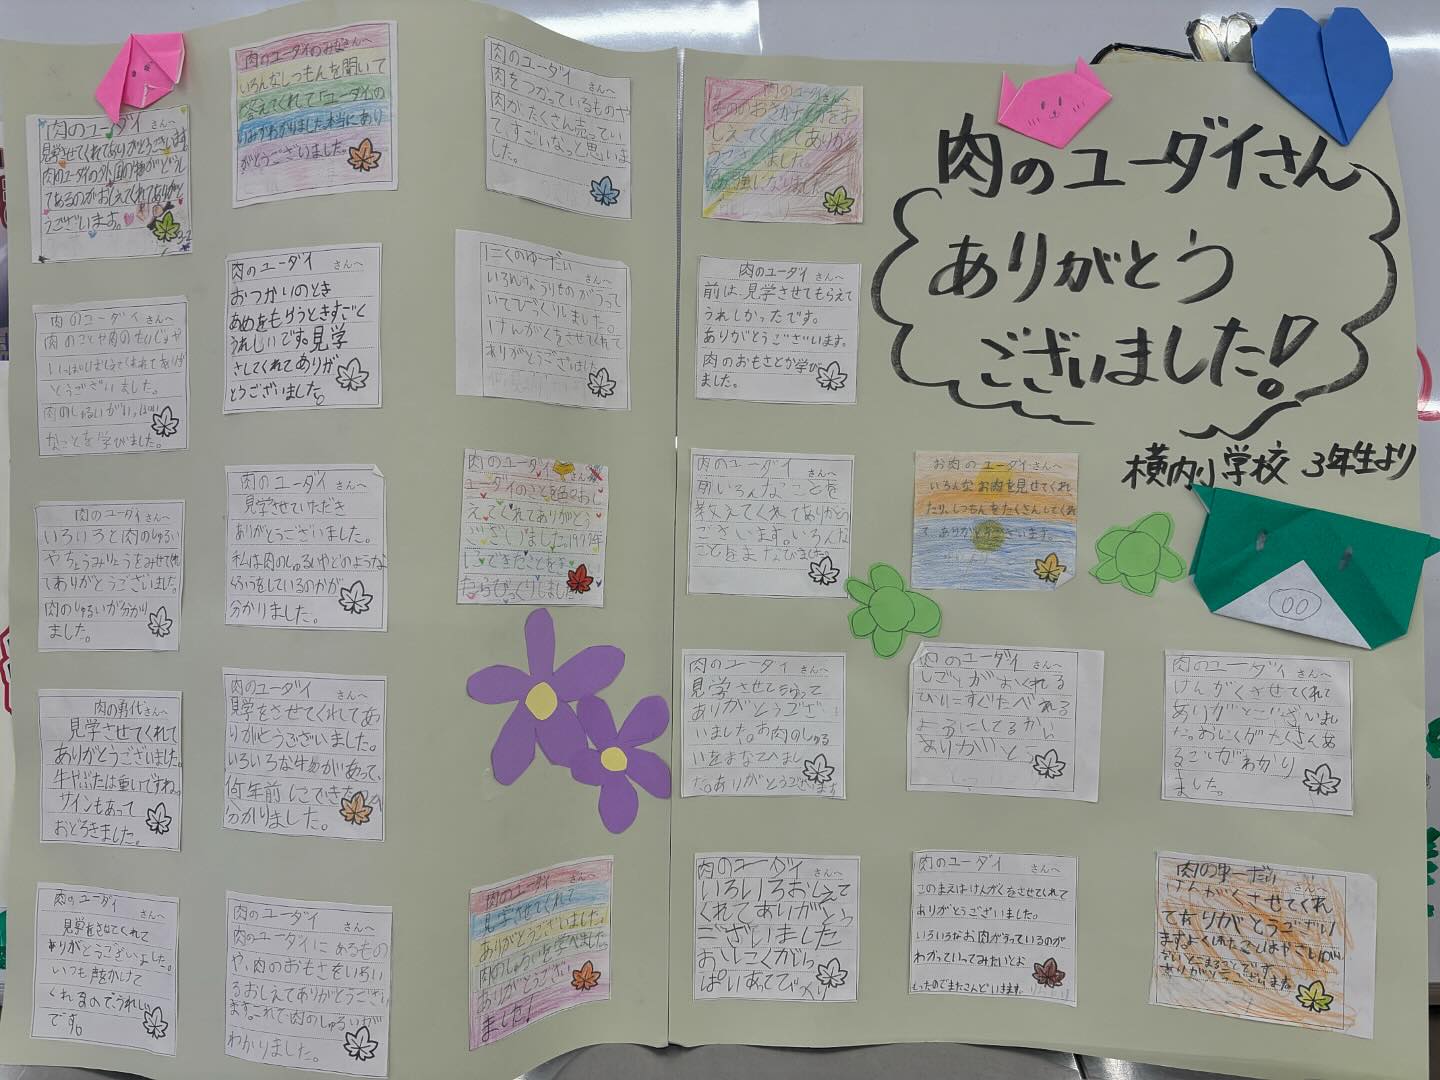 肉のユーダイさん
ありがとう
ございました!
横内小学校 3年生より
肉のユーダイ さんへ
見学させてくれてありがとうございます。
うございます。
肉のユーダイのみなさんへ
いろんなしつもんを聞いて
答えてくれて「ユーダイ」の
いみがわかりました。本当にあり
がとうございました。
肉のユーダイ さんへ
肉をつかっているものや
肉がたくさん売ってい
て、すごいなっと思いま
した。
肉のユーダイ さんへ
肉のユーダイ さんへ
とうございました。
なことを学びました。
肉のユーダイ さんへ
おつかいのとき
あめをもらうときすごく
うれしいです。見学
さしてくれてありが
とうございました。
にくのゆーだい さんへ
いてびっくりしました。
けんがくをさせてくれて
ありがとうございました
肉のユーダイ さんへ
前は、見学させてもらえて
うれしかったです。
ありがとうございます。
肉のおもさとか学び
ました。
肉のユーダイ さんへ
いろいろと肉のしゅるい
やちょうみりょうをみせてくれ
てありがとうございました。
肉のしゅるいが分かり
ました。
肉のユーダイ さんへ
見学させていただき
ありがとうございました。
私は肉のしゅるいやどのような
分かりました。
肉のユーダイ さんへ
ユーダイのことを色々おし
えてくれてありがとう
ございました。1977年
にできたことをき
たらびっくりしました
肉のユーダイ さんへ
教えてくれてありがとう
ございます。いろんな
ことをまなびました。
お肉のユーダイさんへ
いろんなお肉を見せてくれ
たり、しつもんをたくさんしてくれ
ありがとうございます。
肉の勇代さんへ
見学させてくれて
ありがとうございました。
牛やぶたは重いですね。
サインもあって
おどろきました。
肉のユーダイ さんへ
見学をさせてくれてあ
りがとうございました。
何年前にできたのか
分かりました。
肉のユーダイ さんへ
見学させてもらって
ありがとうござ
いました。お肉のしゅる
いをまなべまし
た。ありがとうございます
肉のユーダイ さんへ
ようにしてるから
ありがとう
肉のユーダイ さんへ
けんがくさせてくれて
ありがとうございまし
た。おにくがたくさんあ
ることがわかり
ました。
肉のユーダイ さんへ
見学をさせてくれて
ありがとうございました。
いつも声かけて
くれるのでうれしい
です。
肉のユーダイ さんへ
肉のユーダイにあるもの
や、肉のおもさをいろい
ろおしえてありがとうござい
ます。これで肉のしゅるいが
わかりました。
肉のユーダイ さんへ
見学させてくれて
ありがとうございました。
肉のしゅるいを学べました。
ありがとうござい
ました!
肉のユーダイ さんへ
いろいろおしえて
くれてありがとう
ございました
おにくがいっ
ぱいあってびっくり
肉のユーダイ さんへ
このまえはけんがくをさせてくれて
ありがとうございました。
いろいろなお肉がうっているのが
わかっていってみたいとお
もったのでまたこんどいきます。
肉のゆーだい さんへ
けんがくさせてくれ
てありがとうござい